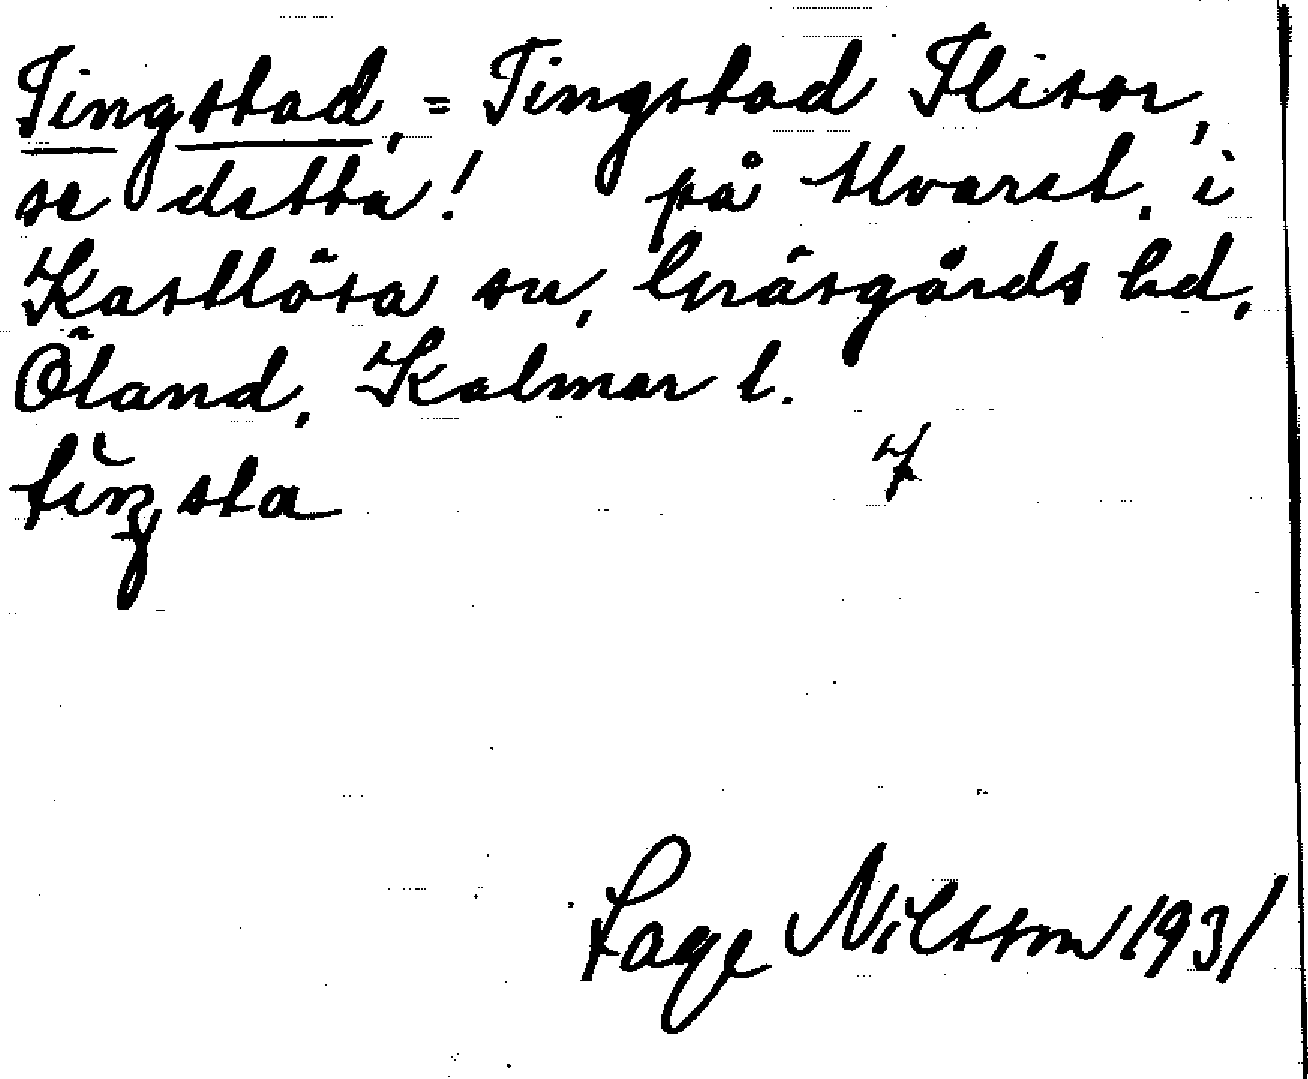 Tingstad, = Tingstad Flisor,
se detta! på Alvaret, i
Kastlösa sn, Gräsgårds hd,
Öland, Kalmar l.
tiŋsta
7
Lage Nilsson 1931